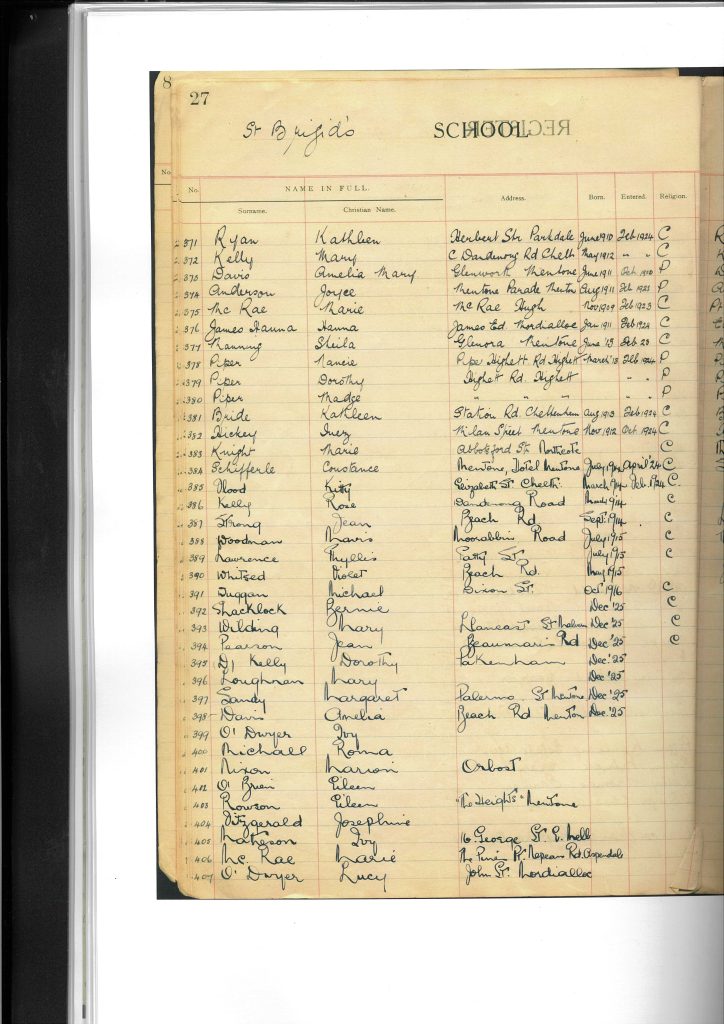 8
27
St Brigid's SCHOOL REGISTER
No
No. NAME IN FULL. Address. Born. Entered. Religion.
Surname. Christian Name.
371 Ryan Kathleen Herbert Str Parkdale June 1910 Feb 1924 C
372 Kelly Mary C Dandenong Rd Chelt May 1912 " " C
373 Davis Amelia Mary Glenworth Mentone June 1911 Oct 1920 P
374 Anderson Joyce Mentone Parade Mentone Aug 1911 Feb 1921 P
375 Mc Rae Marie Mc Rae Hugh Nov 1909 Feb 1923 C
376 James Hanna Hanna James Ed Mordialloc Jan 1911 Feb 1924 C
377 Manning Sheila Glenora Mentone June '13 Feb 23 C
378 Piper Nancie Piper Highett Rd Highett March '13 Feb 1924 P
379 Piper Dorothy Highett Rd. Highett " " P
380 Piper Madge " " " " " P
381 Bride Kathleen Station Rd Cheltenham Aug 1913 Feb 1924 C
382 Hickey Inez Milan Street Mentone Nov 1912 Oct 1924 C
383 Knight Marie Abbotsford St. Northcote C
384 Schifferle Constance Mentone, Hotel Mentone July April '24 C
385 Flood Kitty Elizabeth St Chelt. March 9/14 Feb. 1924 C.
386 Kelly Rose Dandenong Road 9/14 C
387 Strong Jean Beach Rd. Sept. 9/14 C
388 Woodman Mavis Moorabbin Road July 1915 C
389 Lawrence Phyllis Patty St. July 1913 C
390 Whitsed Violet Beach Rd. May 1915
391 Duggan Michael Dixon St. Oct 1916 C
392 Shacklock Bernie Dec '25 C
393 Wilding Mary Llaneast St Malvern Dec '25 C
394 Pearson Jean Beaumaris Rd Dec '25 C
395 Kelly Dorothy Pakenham Dec '25
396 Loughnan Mary Dec '25
397 Landy Margaret Palermo St Mentone Dec '25
398 Davis Amelia Beach Rd Menton Dec '25
399 O' Dwyer Ivy
400 Michall Roma
401 Nixon Marion Orbost
402 O' Brien Eileen
403 Rowson Eileen "The Heights" Mentone
404 Fitzgerald Josephine
405 Matheson Ivy 16 George St. E. Melb
406 Mc. Rae Marie The Pines Pt. Nepean Rd. Aspendale
407 O' Dwyer Lucy John St. Mordialloc